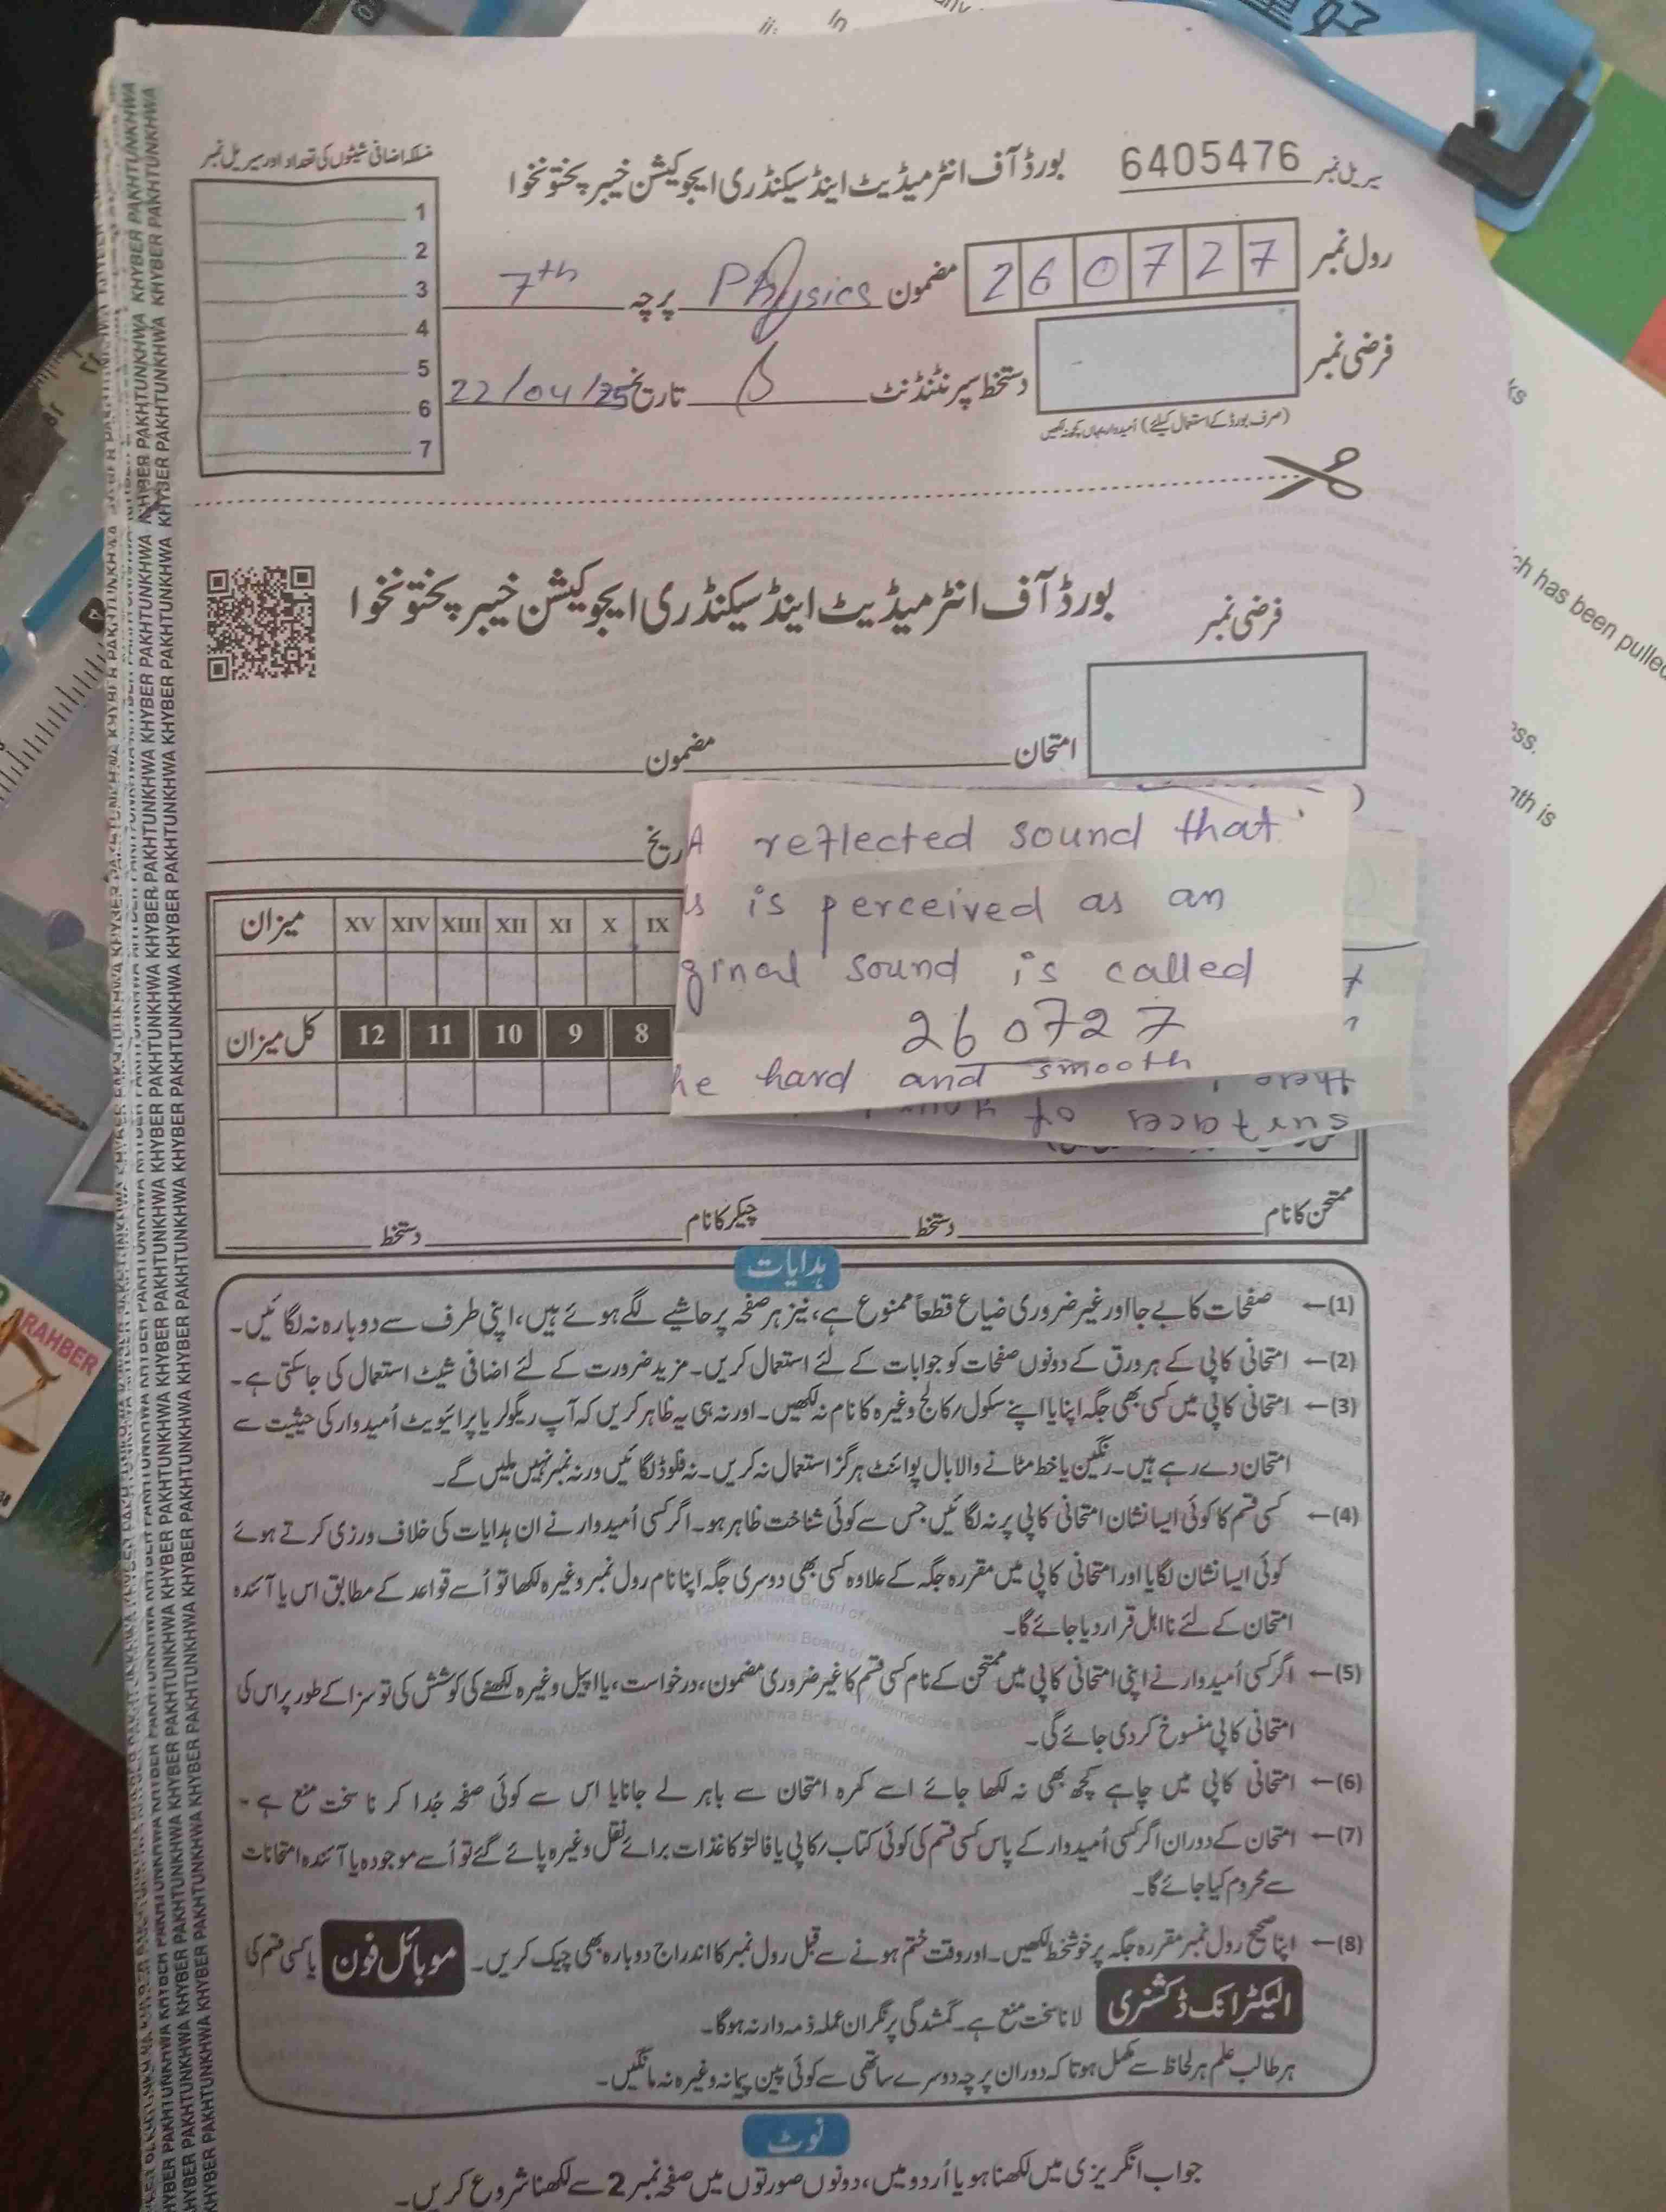 منسلکہ اضافی شیٹوں کی تعداد اور سیریل نمبر
1
2
3
4
5
6
7
بورڈ آف انٹرمیڈیٹ اینڈ سیکنڈری ایجوکیشن خیبر پختونخوا
سیریل نمبر 6405476
رول نمبر 260727
مضمون Physics پرچہ 7th
فرضی نمبر
دستخط سپرنٹنڈنٹ تاریخ 22/04/25
(صرف بورڈ کے استعمال کیلئے) اُمیدوار یہاں کچھ نہ لکھیں
بورڈ آف انٹرمیڈیٹ اینڈ سیکنڈری ایجوکیشن خیبر پختونخوا
فرضی نمبر
امتحان مضمون
A reflected sound that
is perceived as an
ginal sound is called
260727
he hard and smooth
surfaces of
میزان XV XIV XIII XII XI X IX
کل میزان 12 11 10 9 8
ممتحن کا نام دستخط چیکر کا نام دستخط
ہدایات
(1)← صفحات کا بے جا اور غیر ضروری ضیاع قطعاً ممنوع ہے، نیز ہر صفحہ پر حاشیے لگے ہوئے ہیں، اپنی طرف سے دوبارہ نہ لگائیں۔
(2)← امتحانی کاپی کے ہر ورق کے دونوں صفحات کو جوابات کے لئے استعمال کریں۔ مزید ضرورت کے لئے اضافی شیٹ استعمال کی جاسکتی ہے۔
(3)← امتحانی کاپی میں کسی بھی جگہ اپنا یا اپنے سکول/کالج وغیرہ کا نام نہ لکھیں۔ اور نہ ہی یہ ظاہر کریں کہ آپ ریگولر یا پرائیویٹ اُمیدوار کی حیثیت سے
امتحان دے رہے ہیں۔ رنگین یا خط مٹانے والا بال پوائنٹ ہرگز استعمال نہ کریں۔ نہ فلوڈ لگائیں ورنہ نمبر نہیں ملیں گے۔
(4)← کسی قسم کا کوئی ایسا نشان امتحانی کاپی پر نہ لگائیں جس سے کوئی شناخت ظاہر ہو۔ اگر کسی اُمیدوار نے ان ہدایات کی خلاف ورزی کرتے ہوئے
کوئی ایسا نشان لگایا اور امتحانی کاپی میں مقررہ جگہ کے علاوہ کسی بھی دوسری جگہ اپنا نام رول نمبر وغیرہ لکھا تو اُسے قواعد کے مطابق اس یا آئندہ
امتحان کے لئے نااہل قرار دیا جائے گا۔
(5)← اگر کسی اُمیدوار نے اپنی امتحانی کاپی میں ممتحن کے نام کسی قسم کا غیر ضروری مضمون، درخواست، یا اپیل وغیرہ لکھنے کی کوشش کی تو سزا کے طور پر اس کی
امتحانی کاپی منسوخ کر دی جائے گی۔
(6)← امتحانی کاپی میں چاہے کچھ بھی نہ لکھا جائے اسے کمرہ امتحان سے باہر لے جانا یا اس سے کوئی صفحہ جُدا کرنا سخت منع ہے۔
(7)← امتحان کے دوران اگر کسی اُمیدوار کے پاس کسی قسم کی کوئی کتاب/کاپی یا فالتو کاغذات برائے نقل وغیرہ پائے گئے تو اُسے موجودہ یا آئندہ امتحانات
سے محروم کیا جائے گا۔
(8)← اپنا صحیح رول نمبر مقررہ جگہ پر خوشخط لکھیں۔ اور وقت ختم ہونے سے قبل رول نمبر کا اندراج دوبارہ بھی چیک کریں۔ موبائل فون یا کسی قسم کی
الیکٹرانک ڈکشنری لانا سخت منع ہے۔ گمشدگی پر نگران عملہ ذمہ دار نہ ہوگا۔
ہر طالب علم ہر لحاظ سے مکمل ہو تا کہ دوران پرچہ دوسرے ساتھی سے کوئی پین پیمانہ وغیرہ نہ مانگیں۔
نوٹ
جواب انگریزی میں لکھنا ہو یا اُردو میں، دونوں صورتوں میں صفحہ نمبر 2 سے لکھنا شروع کریں۔
KHYBER PAKHTUNKHWA
ch has been pulled
ess.
ath is
RAHBER